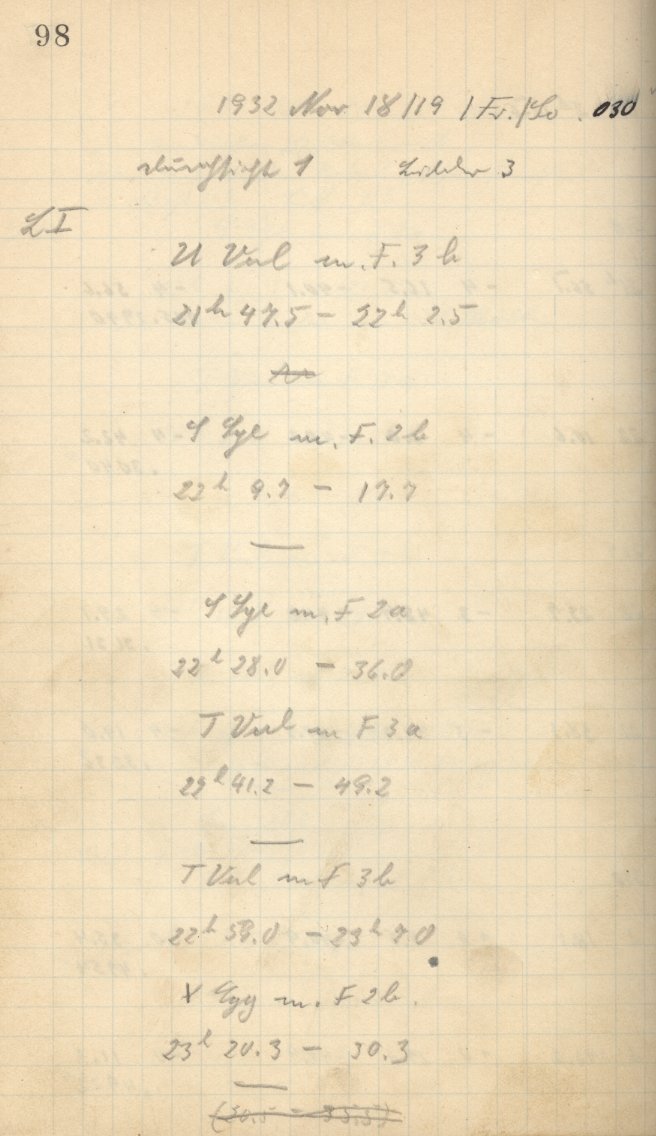 98
1932 Nov 18/19 | Fr./So . 030
Durchsicht 1 Bilder 3
L I
U Vul m. F. 3 b
21 h 47.5 – 22 h 2.5
S Sge m. F. 2 b
22 h 9.7 – 17.7
S Sge m. F 2 a
22 h 28.0 – 36.0
T Vul m F 3 a
22 h 41.2 – 49.2
T Vul m F 3 b
22 h 59.0 – 23 h 7.0
X Cyg m. F 2 b.
23 h 20.3 – 30.3
(30.5 – 35.5)